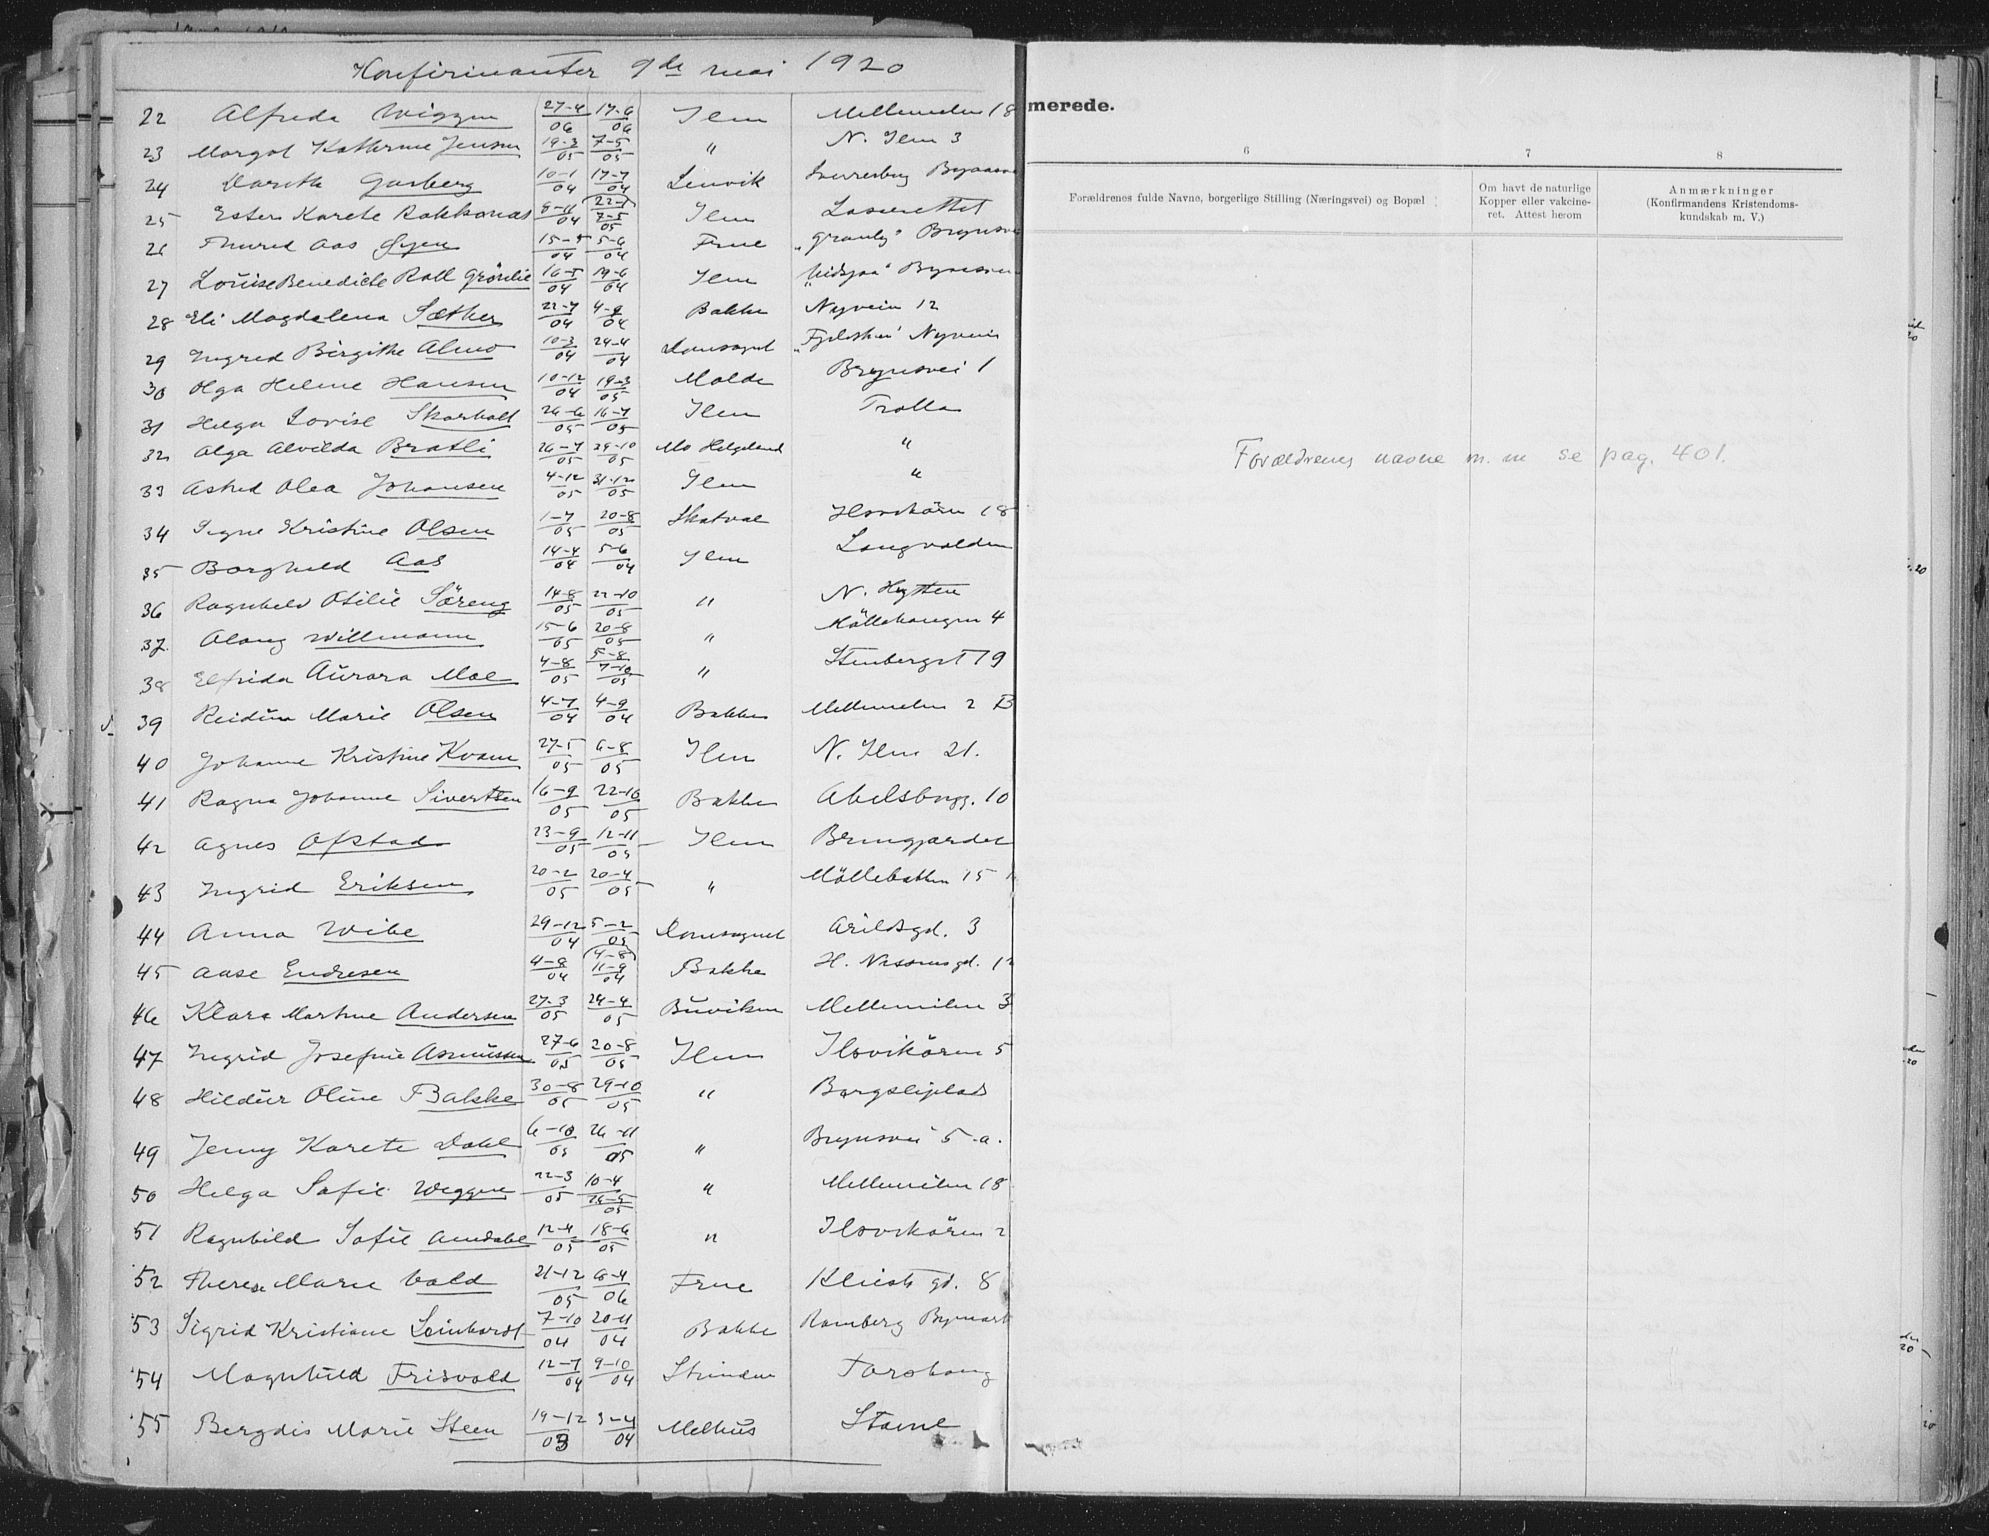 Konfirmanter 9de mai 1920
22 Alfreda Wiggen 27-4/06 17-6/06 Ilen Mellemilen 18
23 Margot Kathrine Jensen 19-3/05 7-5/05 " N. Ilen 3
24 Dorothe Garberg 10-1/04 17-7/04 Lenvik
25 Ester Karete 8-11/04 (22-1) 7-5/05 Ilen Lasarettet
26 Thurid Aas Øyen 15-5/04 5-6/04 Frue
27 Louise Benedicte Roll Grönlie 16-5/04 19-6/04 Ilen
28 Eli Magdalena Sæther 22-7/04 4-9/04 Bakke Nyvein 12
29 Ingrid Birgithe Almo 10-3/04 24-4/04 Domsognet Nyvein
30 Olga Helene Hansen 10-12/04 19-3/05 Molde Brynsvei 1
31 Helga Lovise Skarholt 26-6/05 16-7/05 Ilen Trolla
32 Olga Alvilda Bratli 26-7/05 29-10/05 Mo Helgeland "
33 Astrid Olea Johansen 4-12/05 31-12/05 Ilen "
34 Signe Kristine Olsen 1-7/05 20-8/05 Skatval Ilsvikören 18
35 Borghild Aas 14-4/04 5-6/04 Ilen Langvolden
36 Ragnhild Otilie Söreng 14-8/05 22-10/05 " N. Hytten
37. Olaug Willmann 15-6/05 20-8/05 " Möllebaugen 4
38 Elfrida Aurora Moe 4-8/05 5-8 7-10/05 " Stenbergst 19
39 Reidun Marie Olsen 4-7/04 4-9/04 Bakke Mellemilen 2 B
40 Johanne Kristine Kvam 27-5/05 6-8/05 Ilen N. Ilen 21.
41 Ragna Johanne Sivertsen 16-9/05 22-10/05 Bakke Abelsbygg. 10
42 Agnes Ofstad 23-9/05 12-11/05 Ilen Brungjordet
43 Ingrid Eriksen 20-2/05 20-4/05 " Möllebakken 15
44 Anna Wibe 29-12/04 5-2/05 Domsognet Arildsgd. 3
45 Aase Endresen 4-8/04 (4-8) 11-9/04 Bakke H. Nissensgd. 12
46 Klara Martine Andersen 27-3/05 24-4/05 Buviken Mellemilen 3
47 Ingrid Josefine Asmussen 27-6/05 20-8/05 Ilen Ilsvikören 5
48 Hildur Oline Balske 30-8/05 29-10/05 " Bergsliplads
49 Jenny Karete Dahl 6-10/05 26-11/05 " Brynsvei 5 a.
50 Helga Sofie Wiggen 22-3/05 10-4 26-5/05 " Mellemilen 18
51 Ragnhild Sofie Amdahl 12-4/05 18-6/05 " Ilsvikören 2
52 Therese Marie Vold 21-12/05 6-4/06 Frue gd. 8
53 Sigrid Kristiane Leinhardt 7-10/04 20-11/04 Bakke Ramberg Bymark
54 Magnhild Frisvold 12-7/04 9-10/04 Strinden Torshaug
55 Bergdis Marie Steen 19-12/03 3-4/04 Melhus Stavne
merede.
6
7
8
Forældrenes fulde Navne, borgerlige Stilling (Næringsvei) og Bopæl
Om havt de naturlige
Kopper eller vakcine-
ret. Attest herom
Anmærkninger
(Konfirmandens Kristendoms-
kundskab m. V.)
Forældrenes navne m. m se pag. 401.